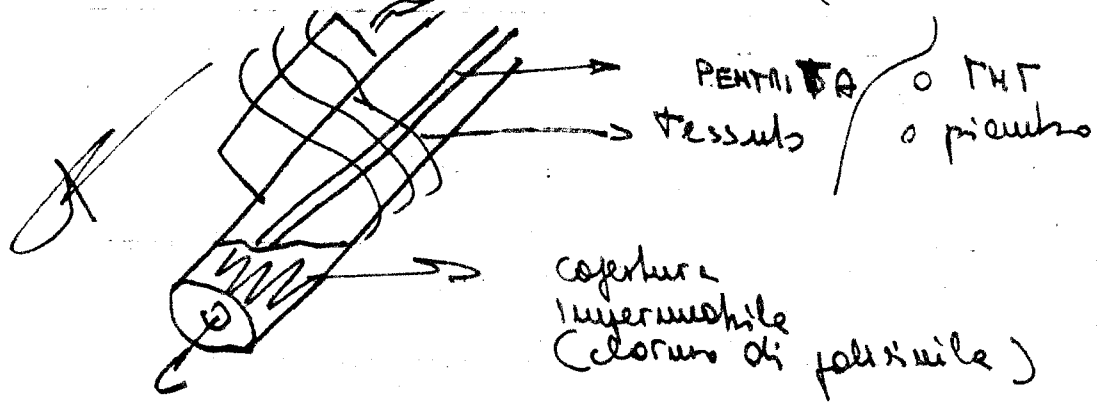 PENTRITA o TNT
Tessuto o piombo
copertura
impermeabile
(cloruro di polivinile)